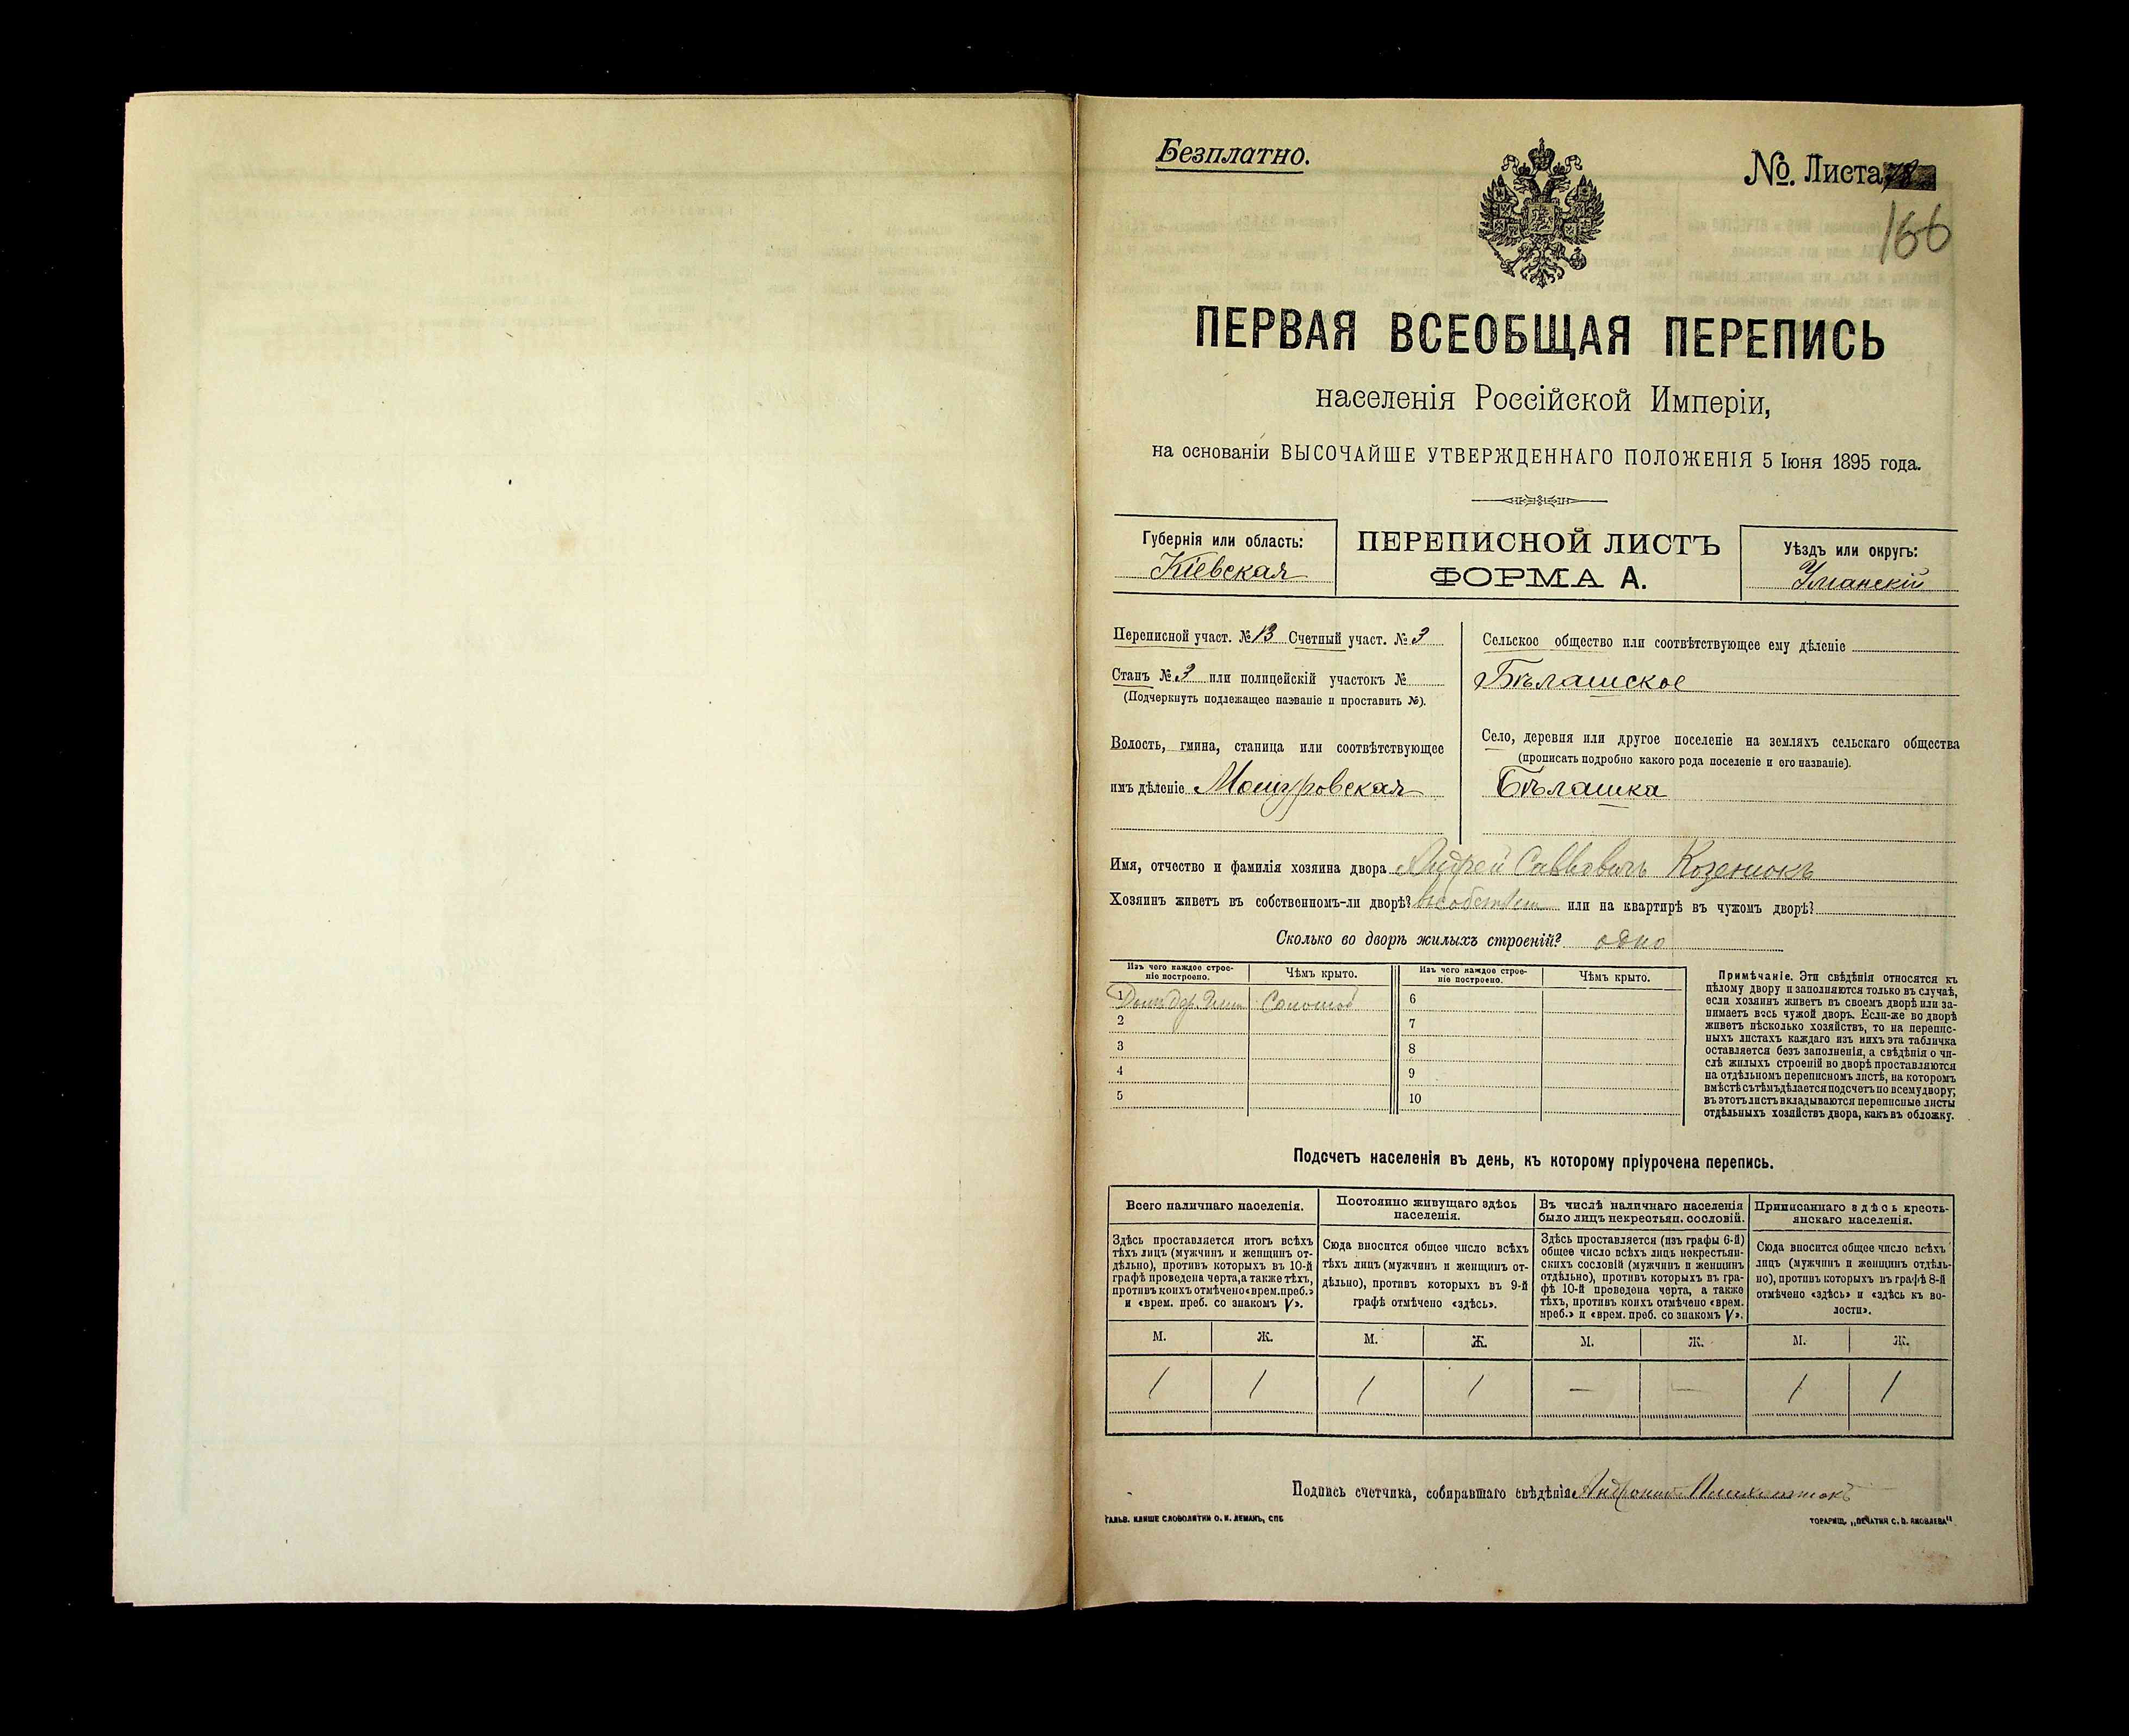 Безплатно.
№. Листа 78
166
ПЕРВАЯ ВСЕОБЩАЯ ПЕРЕПИСЬ
населенія Россійской Имперіи,
на основаніи ВЫСОЧАЙШЕ УТВЕРЖДЕННАГО ПОЛОЖЕНІЯ 5 Іюня 1895 года.
Губернія или область:
Кіевская
ПЕРЕПИСНОЙ ЛИСТЪ
ФОРМА А.
Уѣздъ или округъ:
Уманскій
Переписной участ. № 13 Счетный участ. № 3
Станъ № 3 или полицейскій участокъ №
(Подчеркнуть подлежащее названіе и проставить №).
Волость, гмина, станица или соотвѣтствующее
имъ дѣленіе Мошуровская
Сельское общество или соотвѣтствующее ему дѣленіе
Бѣлашское
Село, деревня или другое поселеніе на земляхъ сельскаго общества
(прописать подробно какого рода поселеніе и его названіе).
Бѣлашка
Имя, отчество и фамилія хозяина двора Андрей Саввовичъ Козенюкъ
Хозяинъ живетъ въ собственномъ-ли дворѣ? или на квартирѣ въ чужомъ дворѣ?
Сколько во дворѣ жилыхъ строеній? одно
Изъ чего каждое строе-
ніе построено.
Чѣмъ крыто.
Изъ чего каждое строе-
ніе построено.
Чѣмъ крыто.
1 Соломой 6
2 7
3 8
4 9
5 10
Примѣчаніе. Эти свѣдѣнія относятся къ
цѣлому двору и заполняются только въ случаѣ,
если хозяинъ живетъ въ своемъ дворѣ или за-
нимаетъ весь чужой дворъ. Если-же во дворѣ
живетъ нѣсколько хозяйствъ, то на перепис-
ныхъ листахъ каждаго изъ нихъ эта табличка
оставляется безъ заполненія, а свѣдѣнія о чи-
слѣ жилыхъ строеній во дворѣ проставляются
на отдѣльномъ переписномъ листѣ, на которомъ
вмѣстѣ съ тѣмъ дѣлается подсчетъ по всему двору;
въ этотъ листъ вкладываются переписные листы
отдѣльныхъ хозяйствъ двора, какъ въ обложку.
Подсчетъ населенія въ день, къ которому пріурочена перепись.
Всего наличнаго населенія.
Здѣсь проставляется итогъ всѣхъ
тѣхъ лицъ (мужчинъ и женщинъ от-
дѣльно), противъ которыхъ въ 10-й
графѣ проведена черта, а также тѣхъ,
противъ коихъ отмѣчено «врем. преб.»
и «врем. преб. со знакомъ V».
Постоянно живущаго здѣсь
населенія.
Сюда вносится общее число всѣхъ
тѣхъ лицъ (мужчинъ и женщинъ от-
дѣльно), противъ которыхъ въ 9-й
графѣ отмѣчено «здѣсь».
Въ числѣ наличнаго населенія
было лицъ некрестьян. сословій.
Здѣсь проставляется (изъ графы 6-й)
общее число всѣхъ лицъ некрестьян-
скихъ сословій (мужчинъ и женщинъ
отдѣльно), противъ которыхъ въ гра-
фѣ 10-й проведена черта, а также
тѣхъ, противъ коихъ отмѣчено «врем.
преб.» и «врем. преб. со знакомъ V».
Приписаннаго здѣсь кресть-
янскаго населенія.
Сюда вносится общее число всѣхъ
лицъ (мужчинъ и женщинъ отдѣль-
но), противъ которыхъ въ графѣ 8-й
отмѣчено «здѣсь» и «здѣсь къ во-
лости».
М. Ж. М. Ж. М. Ж. М. Ж.
1 1 1 1 — — 1 1
Подпись счетчика, собиравшаго свѣдѣнія
ГАЛЬВ. КЛИШЕ СЛОВОЛИТНИ О. И. ЛЕМАНЪ, СПБ
ТОВАРИЩ. „ПЕЧАТНЯ С. П. ЯКОВЛЕВА"